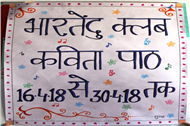 भारतेंदु क्लब
कविता पाठ
16·4·18 से 30·4·18 तक